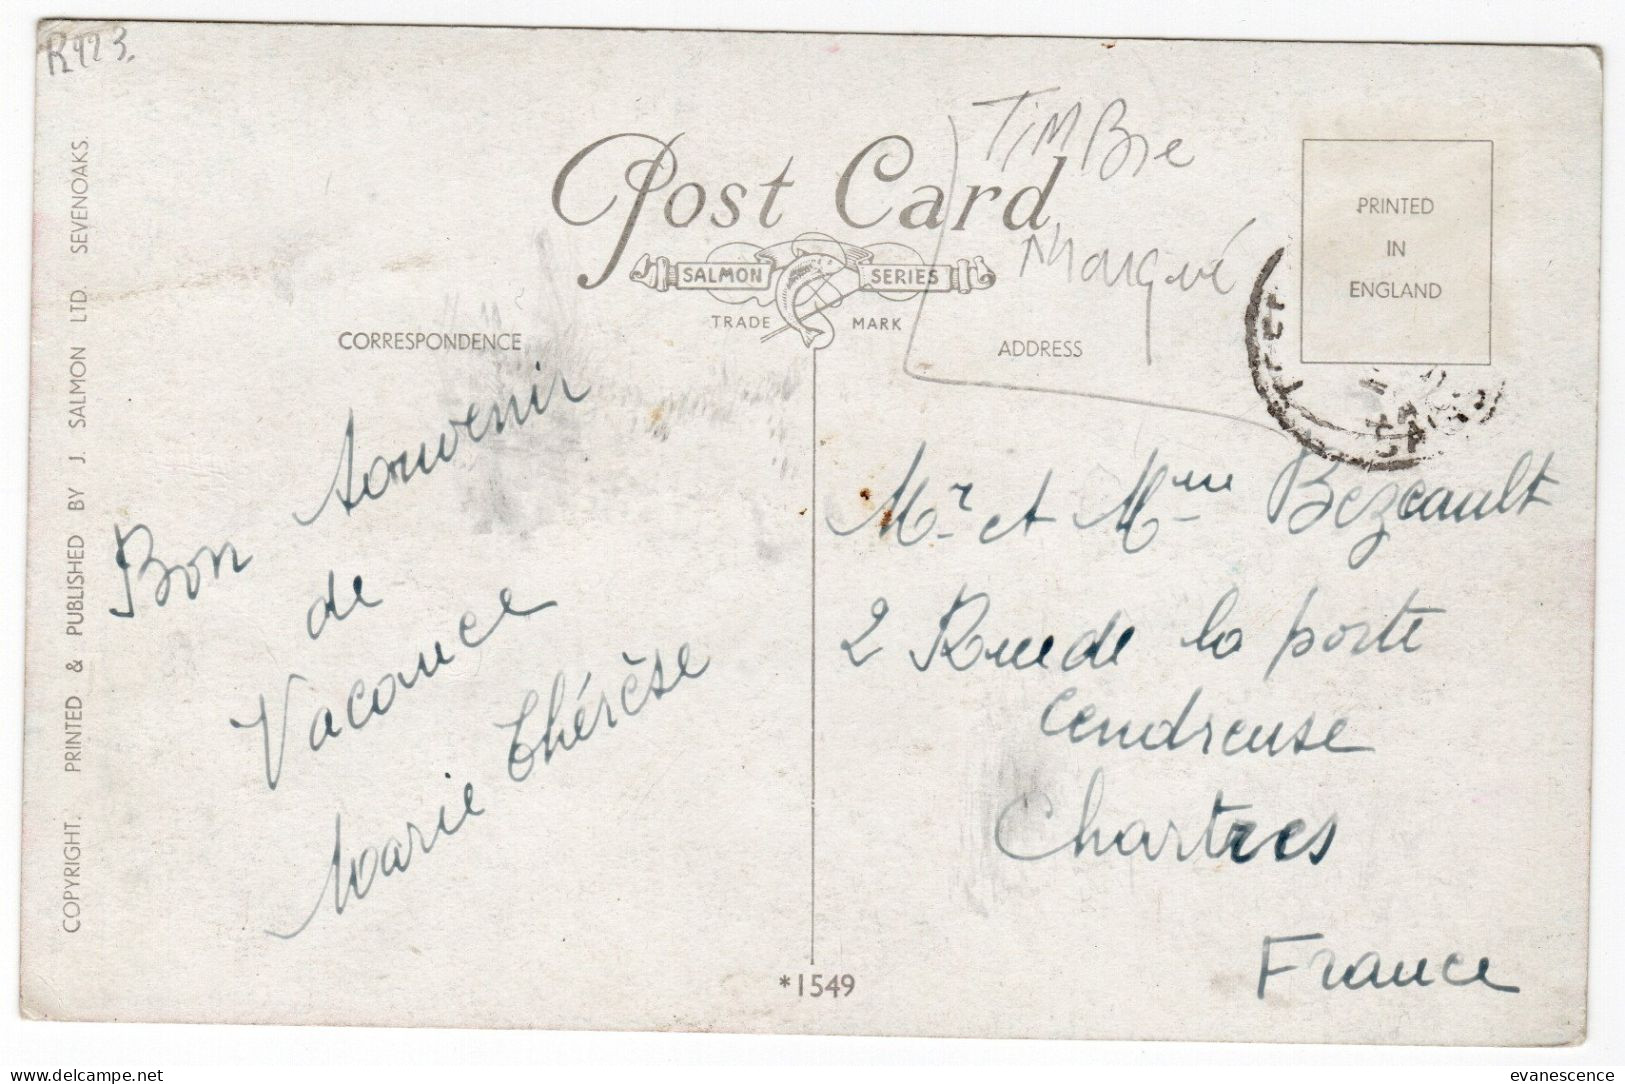 R923.
TiMBre
Marqué
Post Card
SALMON SERIES
TRADE MARK
PRINTED
IN
ENGLAND
CORRESPONDENCE
ADDRESS
COPYRIGHT. PRINTED & PUBLISHED BY J. SALMON LTD. SEVENOAKS.
Bon souvenir
de
Vacance
Marie Thérèse
Mr et Mme Bezeault
2 Rue de la porte
Cendreuse
Chartres
France
*1549
delcampe.net
evanescence